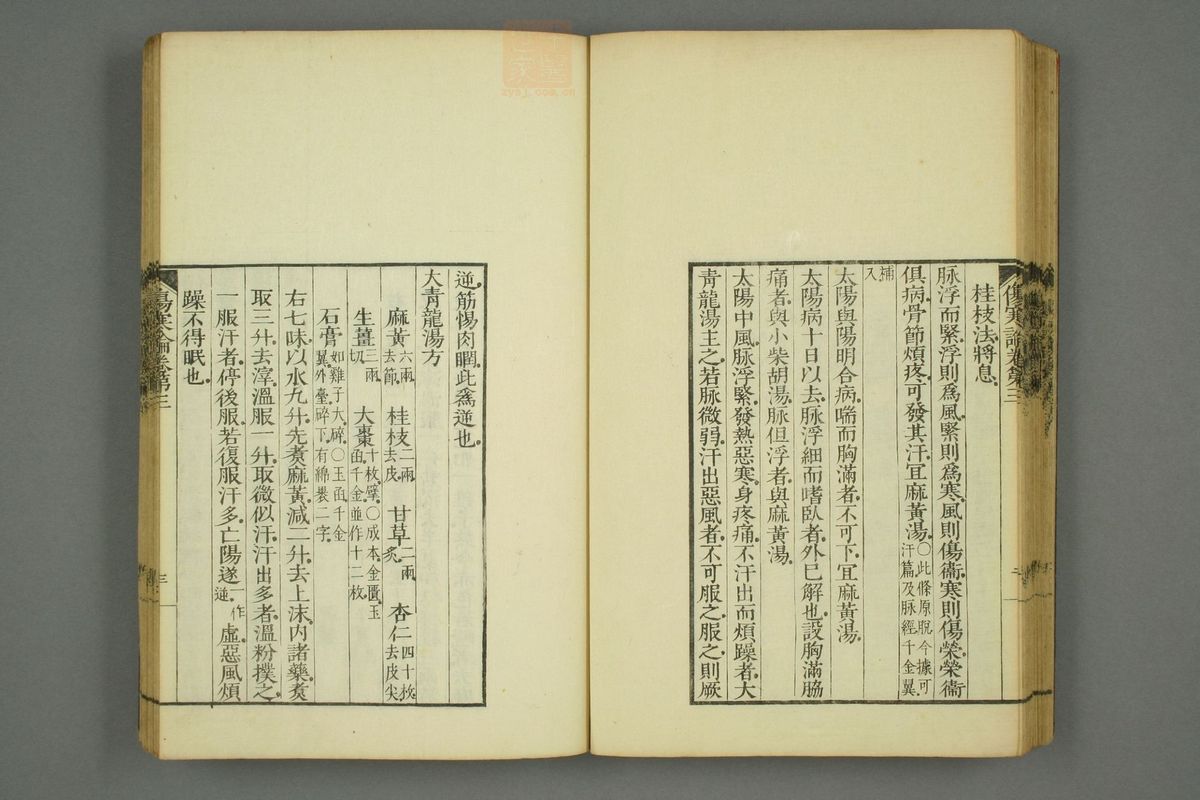 傷寒論卷第三
桂枝法將息
脉浮而緊浮則爲風緊則爲寒風則傷衞寒則傷榮榮衞
俱病骨節煩疼可發其汗宜麻黃湯○此條原脫今據可汗篇及脉經千金翼
補入
太陽與陽明合病喘而胸滿者不可下宜麻黃湯
太陽病十日以去脉浮細而嗜臥者外已解也設胸滿脇
痛者與小柴胡湯脉但浮者與麻黃湯
太陽中風脉浮緊發熱惡寒身疼痛不汗出而煩躁者大
青龍湯主之若脉微弱汗出惡風者不可服之服之則厥
逆筋惕肉瞤此爲逆也
大青龍湯方
麻黃六兩去節 桂枝二兩去皮 甘草二兩炙 杏仁四十枚去皮尖
生薑三兩切 大棗十枚擘○成本金匱玉函千金並作十二枚
石膏如雞子大碎○玉函千金翼外臺碎下有綿裹二字
右七味以水九升先煑麻黃減二升去上沫內諸藥煑
取三升去滓溫服一升取微似汗汗出多者溫粉撲之
一服汗者停後服若復服汗多亡陽遂一作逆虛惡風煩
躁不得眠也
傷寒論卷第三
三
zysj.com.cn